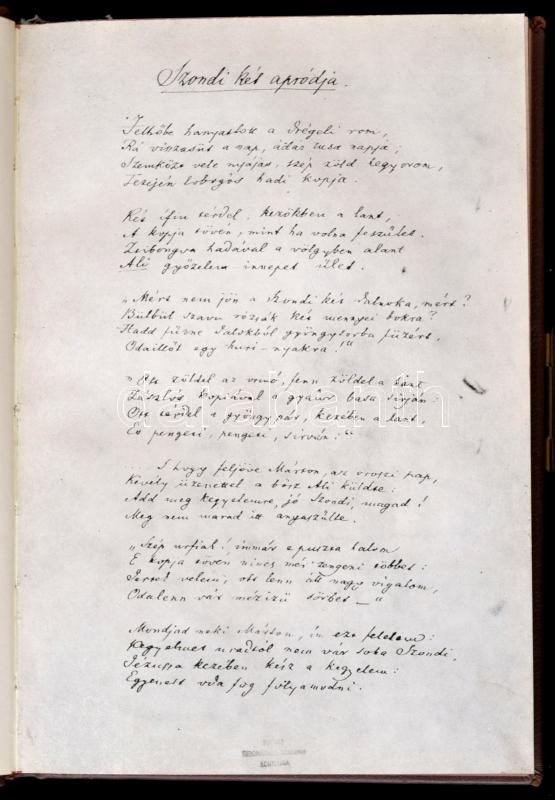 Szondi két apródja.
Felhőbe hanyatlott a drégeli rom,
Rá visszasüt a nap, ádáz tusa napja;
Szemközt vele nyájas, szép zöld hegyorom,
Tetején lobogós hadi kopja.
Két ifiu térdel, kezökben a lant,
A kopja tövén, mint ha volna feszűlet.
Zsibongva hadával a völgyben alant
Ali győzelem innepet űlet.
„Mért nem jön a Szondi két dalnoka, mért?
Bülbül szavu rózsák két mennyei bokra?
Hadd fűzne dalokból gyöngysorba füzért,
Odaillőt egy huri-nyakra!"
„Ott zöldel az ormó, fenn zöldel a hant
Zászlós kopiával a gyaur basa sírján:
Ott térdel a gyöngypár, kezében a lant,
És pengeti, pengeti, sírván:"
... S hogy feljöve Márton, az oroszi pap,
Kevély üzenettel a bősz Ali küldte:
Add meg kegyelemre, jó Szondi, magad!
Meg nem marad itt anyaszülte.
„Szép úrfiak! immár e puszta halom
E kopja tövén nincs mér' zengeni többet:
Jertek velem, ott lenn áll nagy vigalom,
Odalenn vár mézízü sörbet —"
Mondjad neki Márton, ím ezt felelem:
Kegyelmet uradtól nem vár soha Szondi,
Jézussa kezében kész a kegyelem:
Egyenest oda fog folyamodni.
darabanth